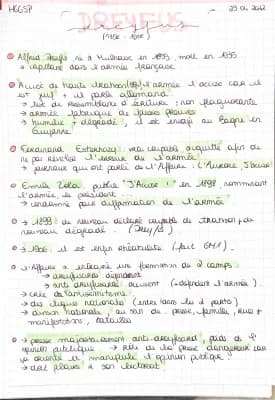 HGGSP
DREYFUS
Alfred Dreyfus né à Mulhouse en 1859, mort en 1935
→ capitaine dans l'armée française
Accusé de haute trahison l'armée l'accuse car il
est juif + il parle allemand
→ test de ressemblance d'écriture : non
→ armée fabrique de fausses preuves
→ humilié + dégradé, il est envoyé au bagne en
Guyane
Ferdinand Esterhazy : vrai coupable acquitté afin de
ne pas révéler l'erreur de l'armée
→ journaux qui ont parlé de l'Affaire : L'Aurore, J'accuse
Emile Zola publie "J'Accuse !" en 1898, nommant
l'armée, le président
→ condamné pour diffamation de l'armée
→ 1899 : de nouveau déclaré coupable de trahison, de
nouveau dégradé.
→ 1906 : il est enfin réhabilité
L'Affaire a entraîné une formation de 2 camps
→ dreyfusards défendent
→ anti dreyfusards accusent (+ défendent l'armée)
→ crée de l'antisémitisme
→ des ligues nationales
→ division nationale, au sein de presse, familles, rues +
manifestations, batailles
→ presse majoritairement anti-dreyfusard, puis de
→ rôle de la presse dangereux car
ça oriente et manipule l'opinion publique
→ doit plaire à son électorat